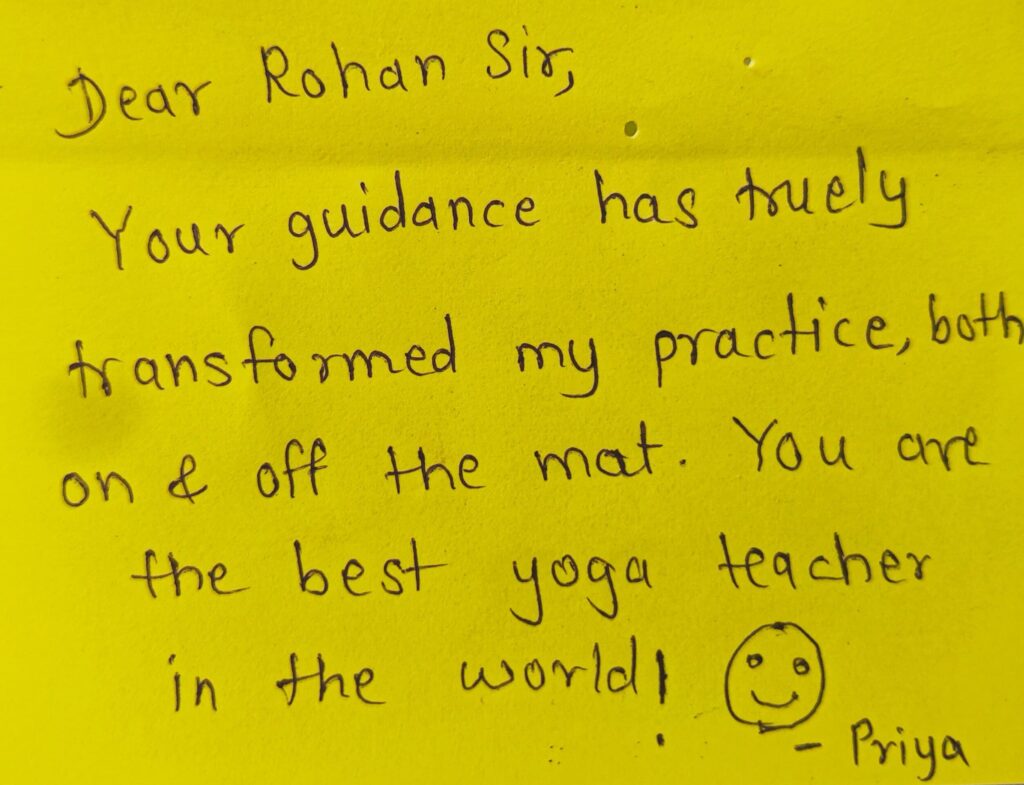 Dear Rohan Sir,
Your guidance has truely
transformed my practice, both
on & off the mat. You are
the best yoga teacher
in the world!
- Priya